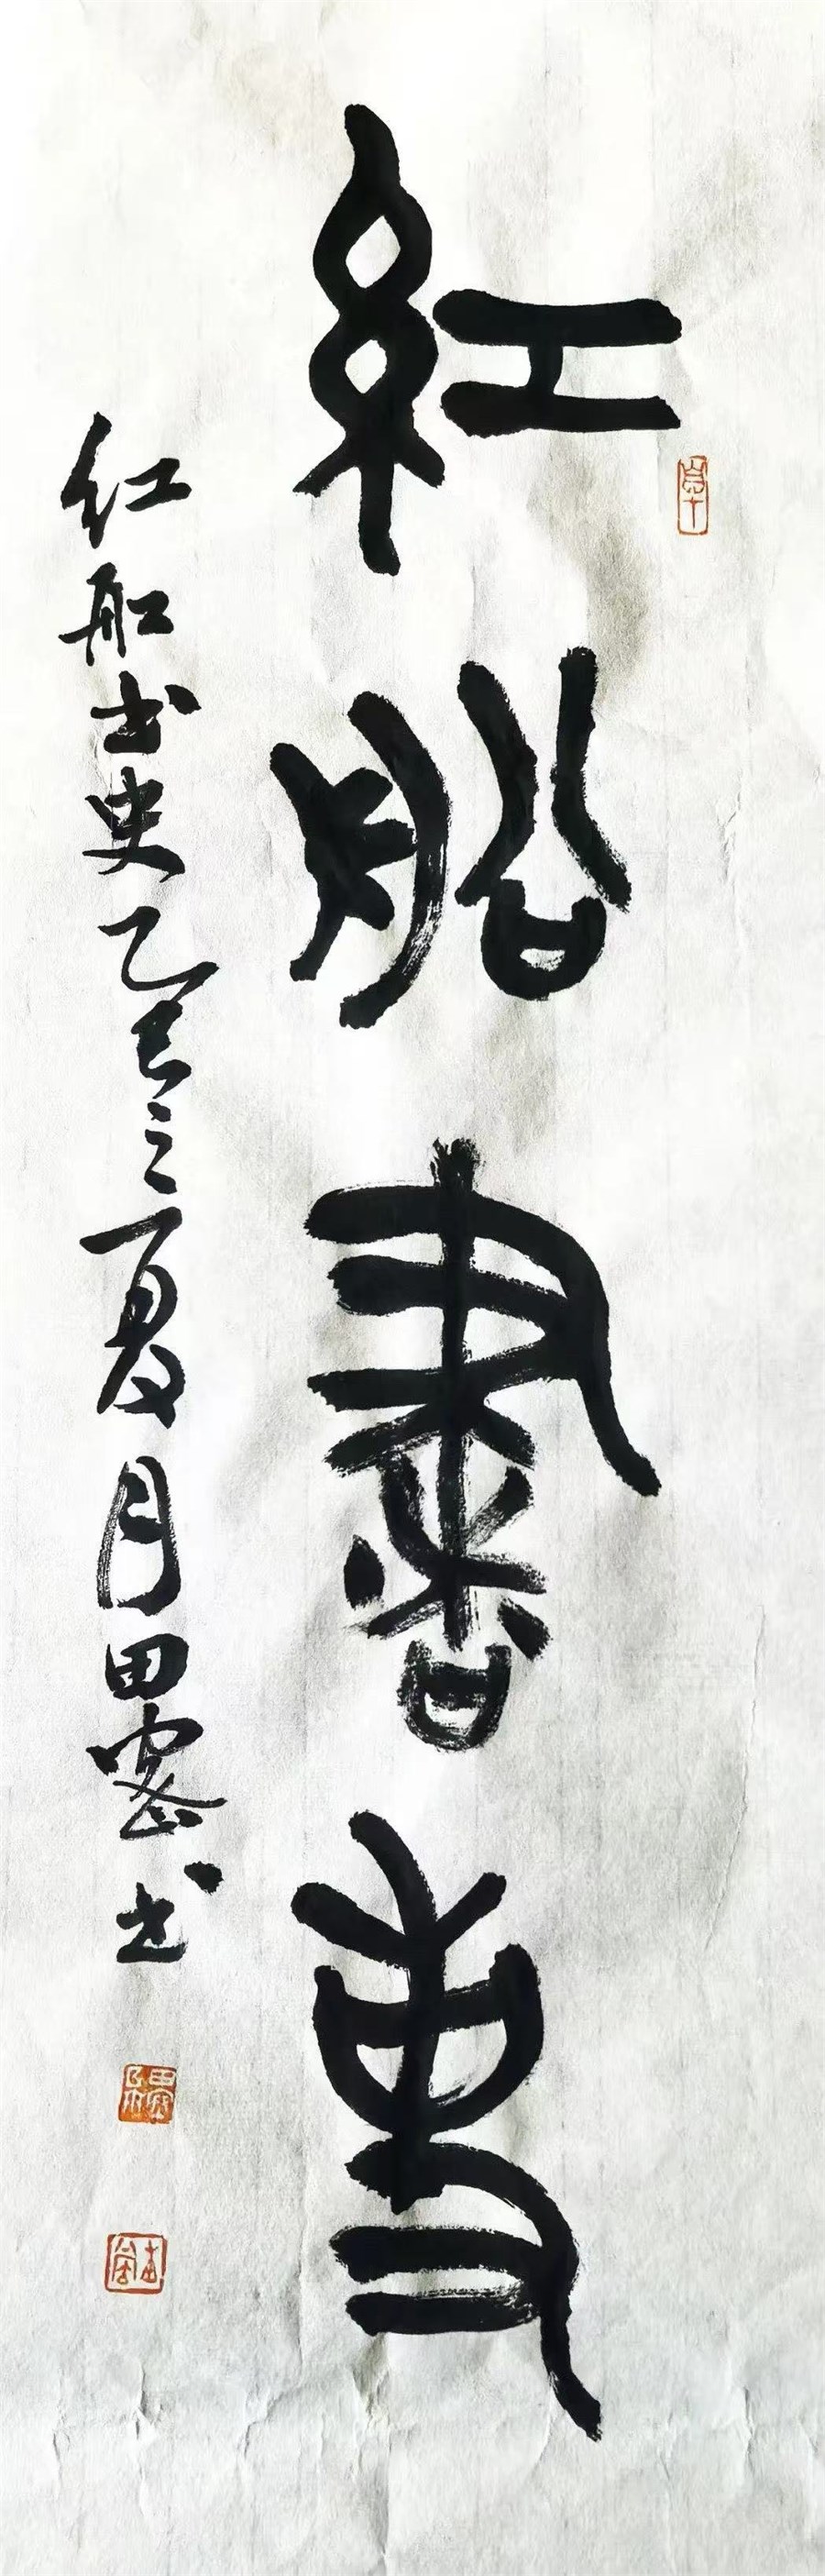 紅船書史
红船书史乙巳之夏月田密书